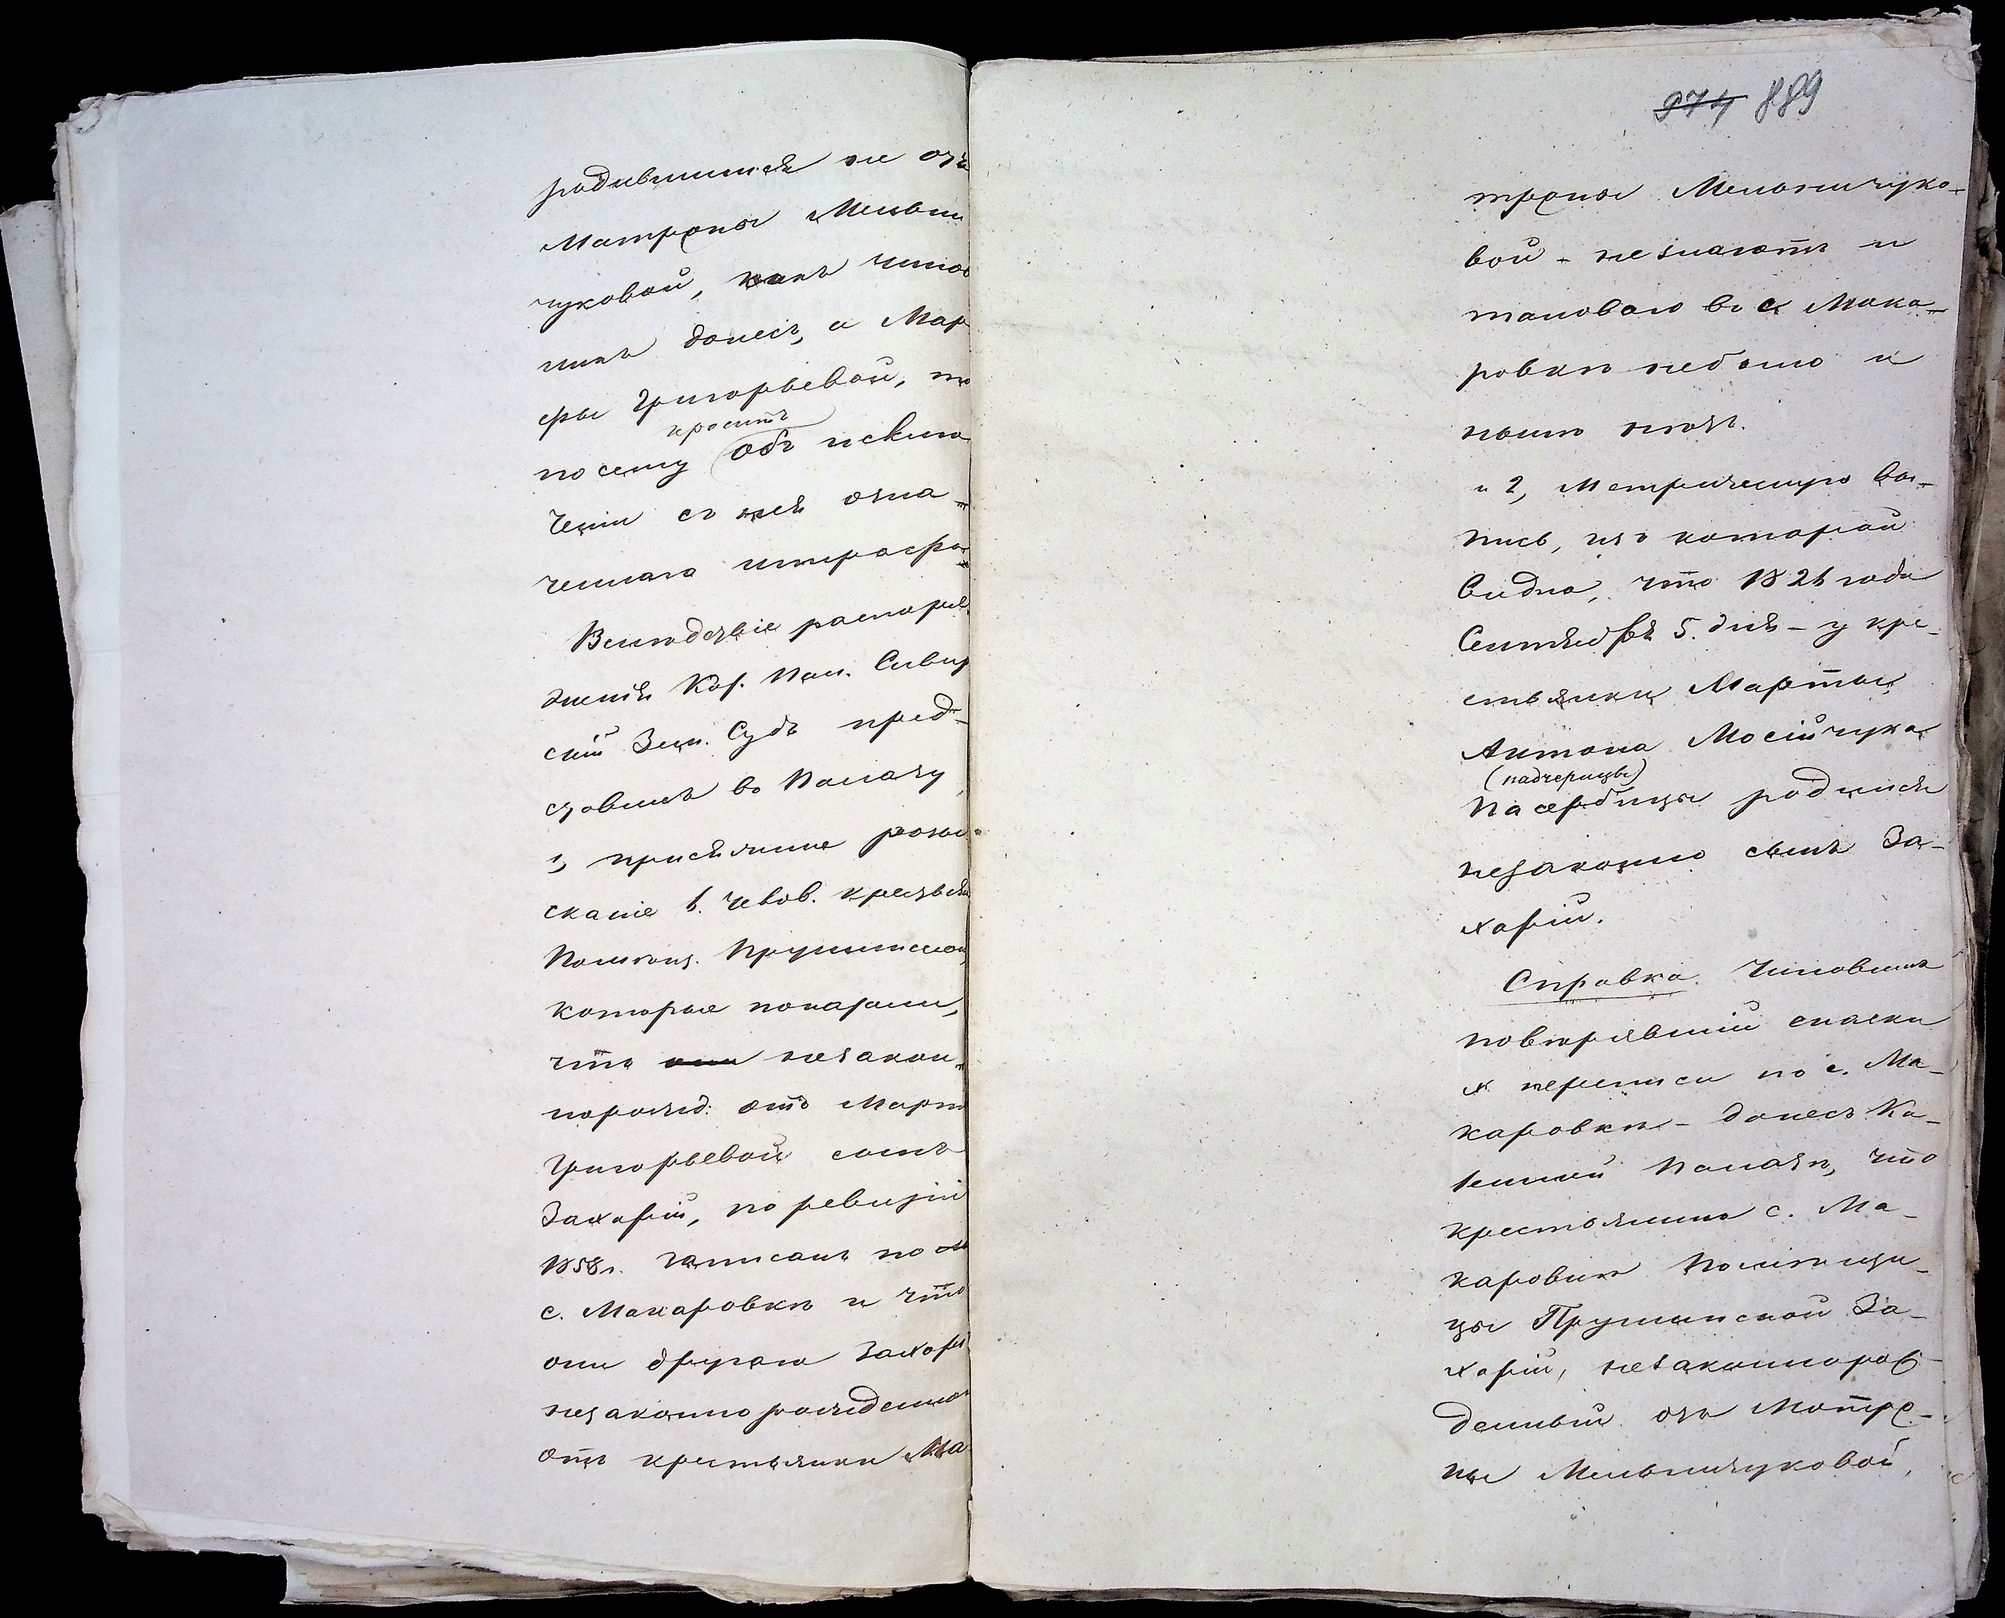 родившимся не отъ
Матроны Мельни
чуковой, какъ чинов
никъ донесъ, а Мар
фы Григорьевой, то
проситъ
посему объ исклю
ченіи съ нея озна-
ченнаго штрафа.
Вслѣдствіе распоря
женія Каз. Пал. Сквир
скій Зем. Судъ пред-
ставилъ въ Палату
1, присяжное розы
сканіе 1. челов. крестьян
Помѣщ. Прушинской,
которые показали,
что они незакон-
норожд: отъ Март
Григорьевой сынъ
Захарій, по ревизіи
1858 г. записанъ по
с. Макаровкѣ и что
они другаго Захарія
незаконно рожденнаго
отъ крестьянки Ма
974 889
троны Мельничуко-
вой - не знаютъ и
таковаго въ с Мака-
ровкѣ небыло и
нынѣ нѣтъ.
и 2, Метрическую вы-
пись, изъ которой
видно, что 1826 года
Сентября 5. дня - у кре-
стьянки Марты
Антона Мосійчука
(падчерицы)
Пасербицы родился
незаконно сынъ За-
харій.
Справка. Чиновникъ
повѣрявшій списки
х переписи по с. Ма-
каровкѣ - донесъ Ка-
зенной Палатѣ, что
крестьянинъ с. Ма-
каровки Помѣщи-
цы Прушинской За-
харій, незаконнорож-
денный отъ Матро-
ны Мельничуковой,